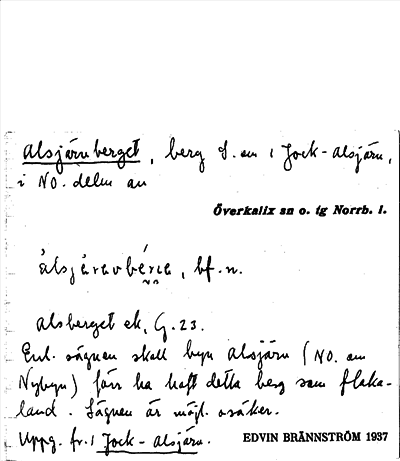 Alsjärnberget, berg S. om 1 Jock-alsjärn,
i NO. delen av
Överkalix sn o. tg Norrb. l.
bf. n.
Alsberget ek. G. 23.
Enl. sägnen skall byn Alsjärn (NO. om
Nybyn) förr ha haft detta berg som flaka-
land. Sägnen är möjl. osäker.
Uppg. fr. 1 Jock-alsjärn.
EDVIN BRÄNNSTRÖM 1937